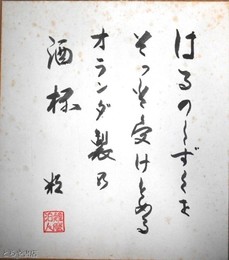 はるのしずくを
そっと受けとめる
オランダ製の
酒杯